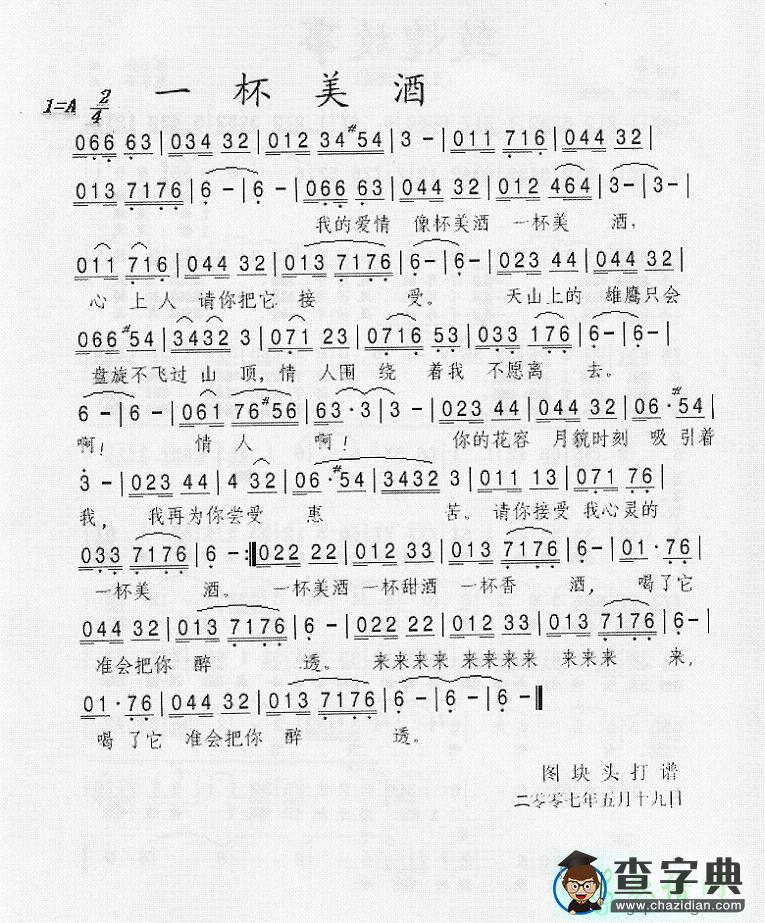 一杯美酒
1=A 2/4
066 63|034 32|012 34#54|3 -|011 716|044 32|
013 7176|6 -|6 -|066 63|044 32|012 464|3 -|3 -|
我的爱情 像杯美酒 一杯美 酒,
011 716|044 32|013 7176|6 -|6 -|023 44|044 32|
心 上 人 请你把它 接 受。 天山上的 雄鹰只会
066#54|3432 3|071 23|0716 53|033 176|6 -|6 -|
盘旋不飞过 山 顶,情 人围 绕 着我 不愿离 去。
6 -|6 -|061 76#56|63·3|3 -|023 44|044 32|06·#54|
啊! 情 人 啊! 你的花容 月貌时刻 吸 引着
3 -|023 44|4 32|06·#54|3432 3|011 13|071 76|
我, 我再为你尝受 惠 苦。请你接受 我心灵的
033 7176|6 -:‖022 22|012 33|013 7176|6 -|01·76|
一杯美 酒。 一杯美酒 一杯甜酒 一杯香 酒, 喝了它
044 32|013 7176|6 -|022 22|012 33|013 7176|6 -|
准会把你 醉 透。 来来来来 来来来来 来来来 来,
01·76|044 32|013 7176|6 -|6 -|6 -‖
喝 了它 准会把你 醉 透。
图块头打谱
二零零七年五月十九日
查字典
www.chazidian.com